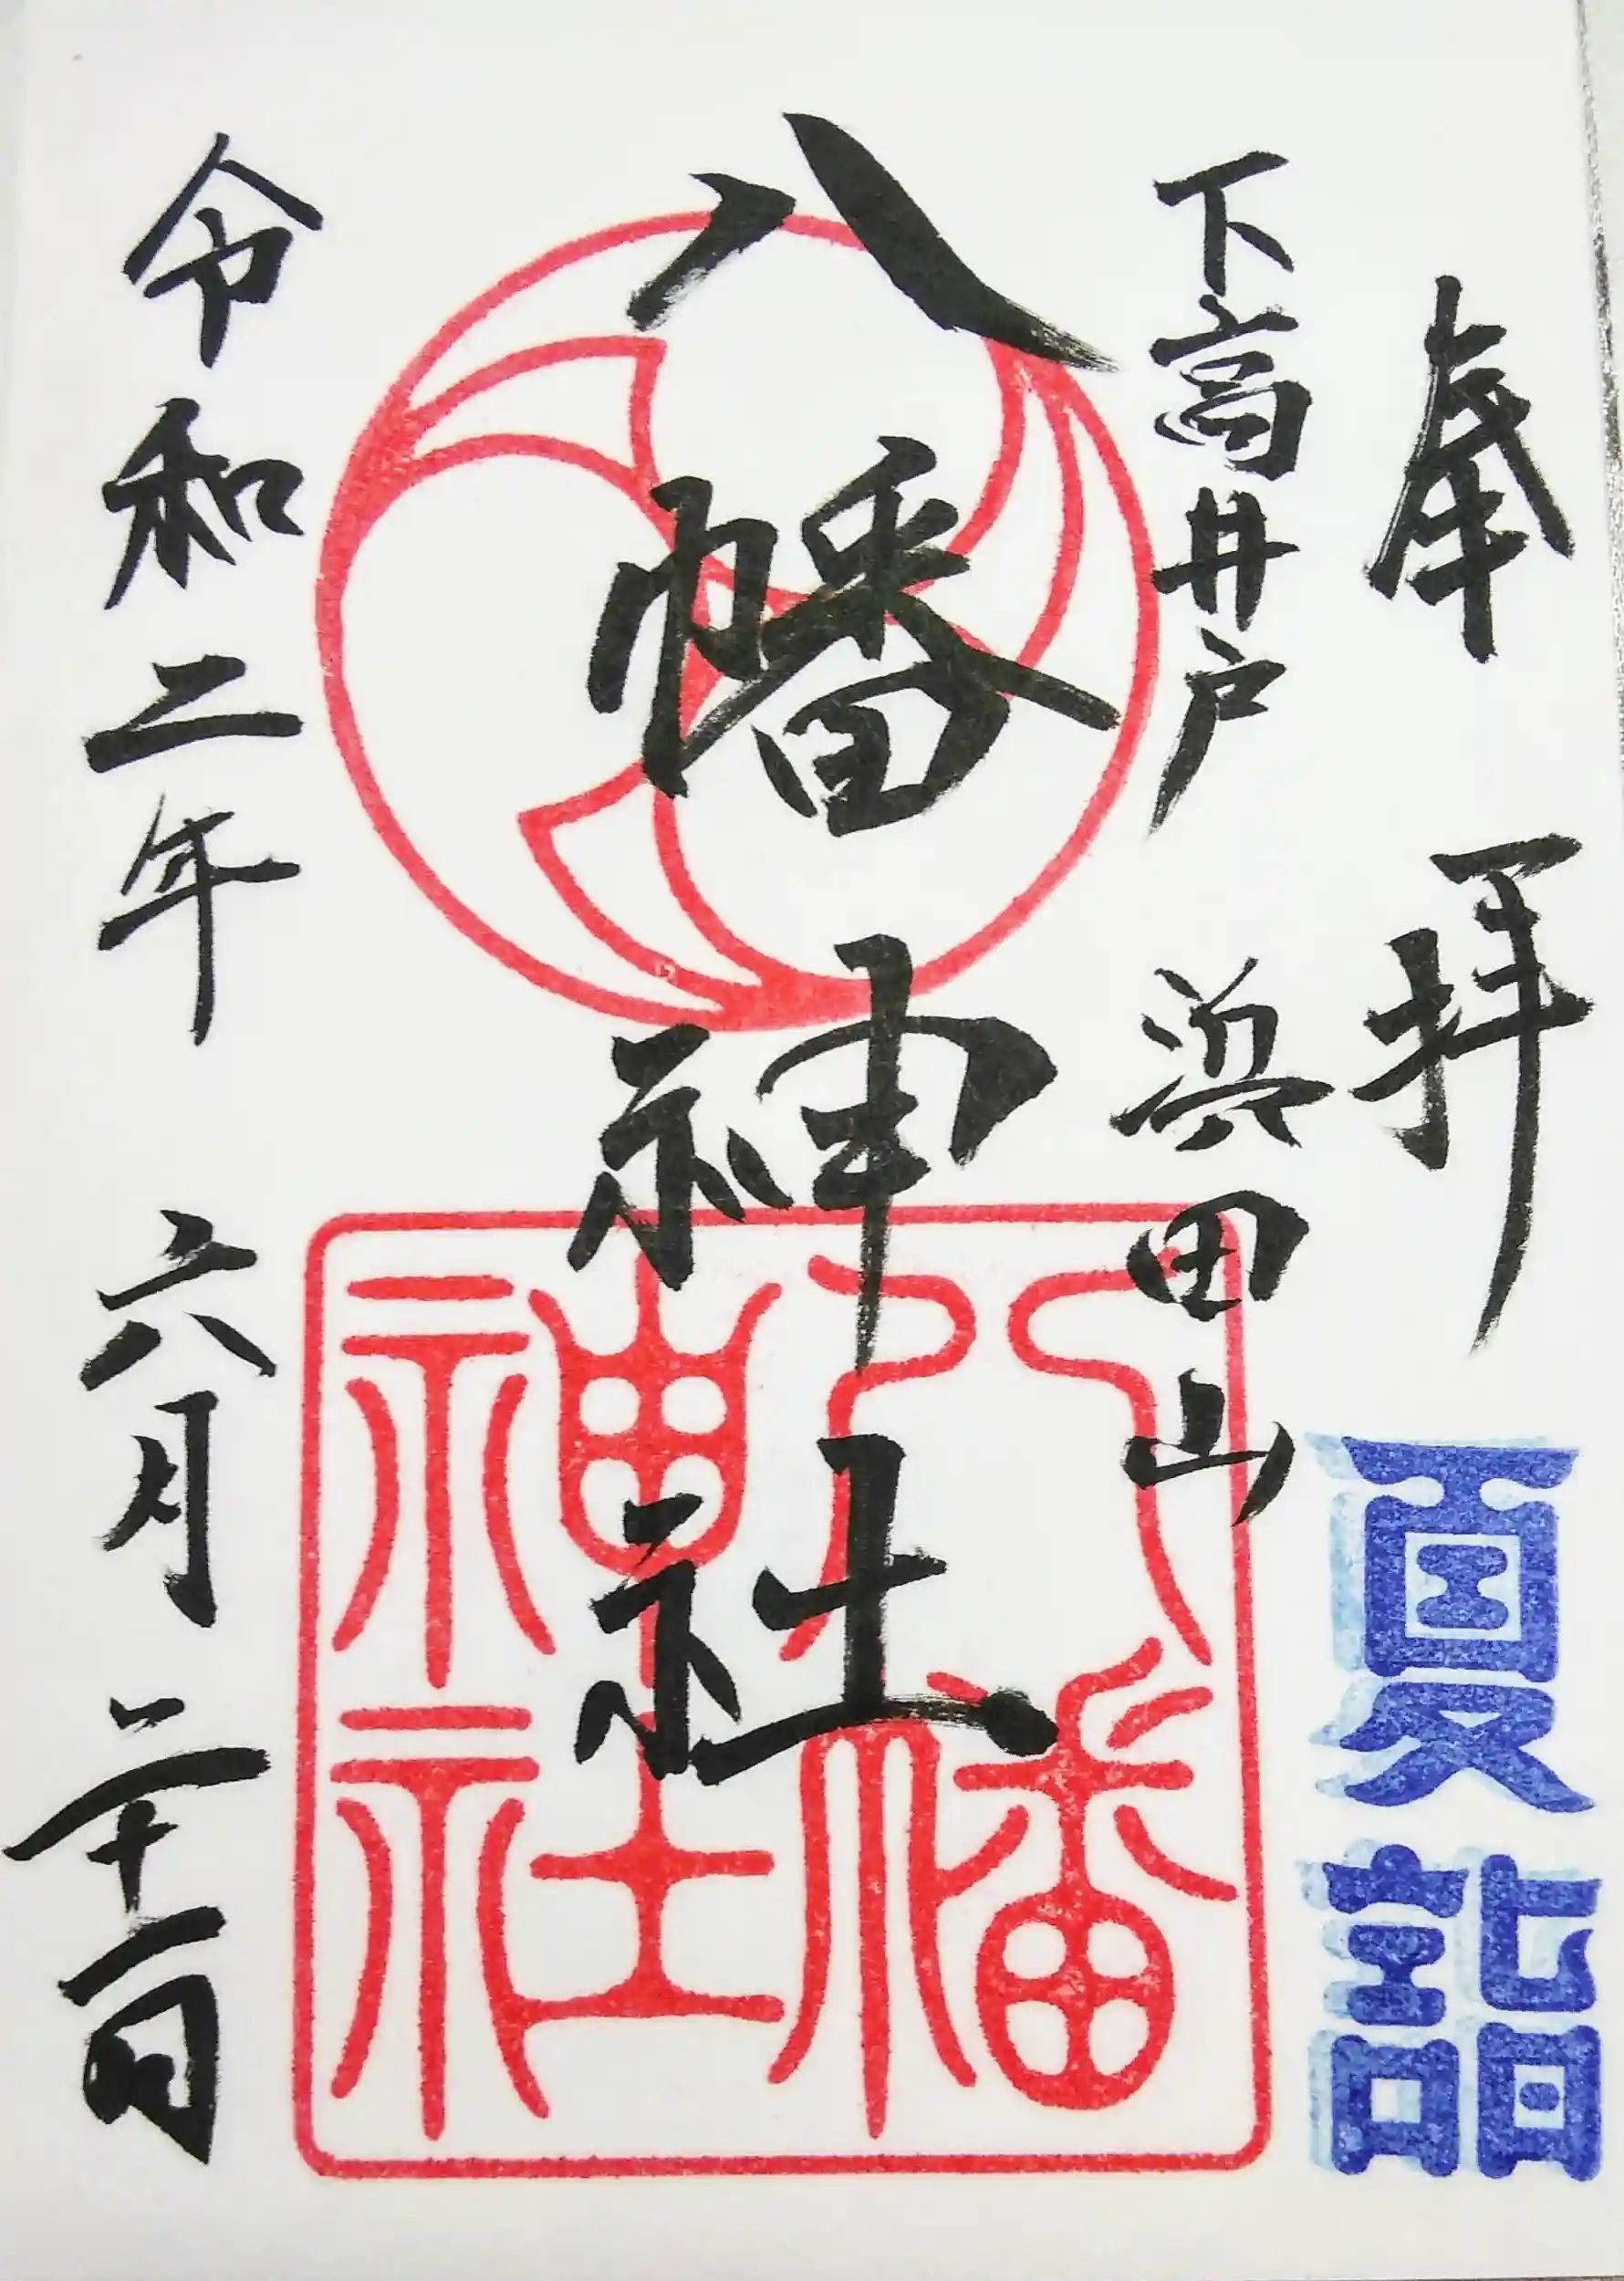 奉拝
夏詣
下高井戸 浜田山
八幡神社
八幡
神社
令和二年 六月 二十一日